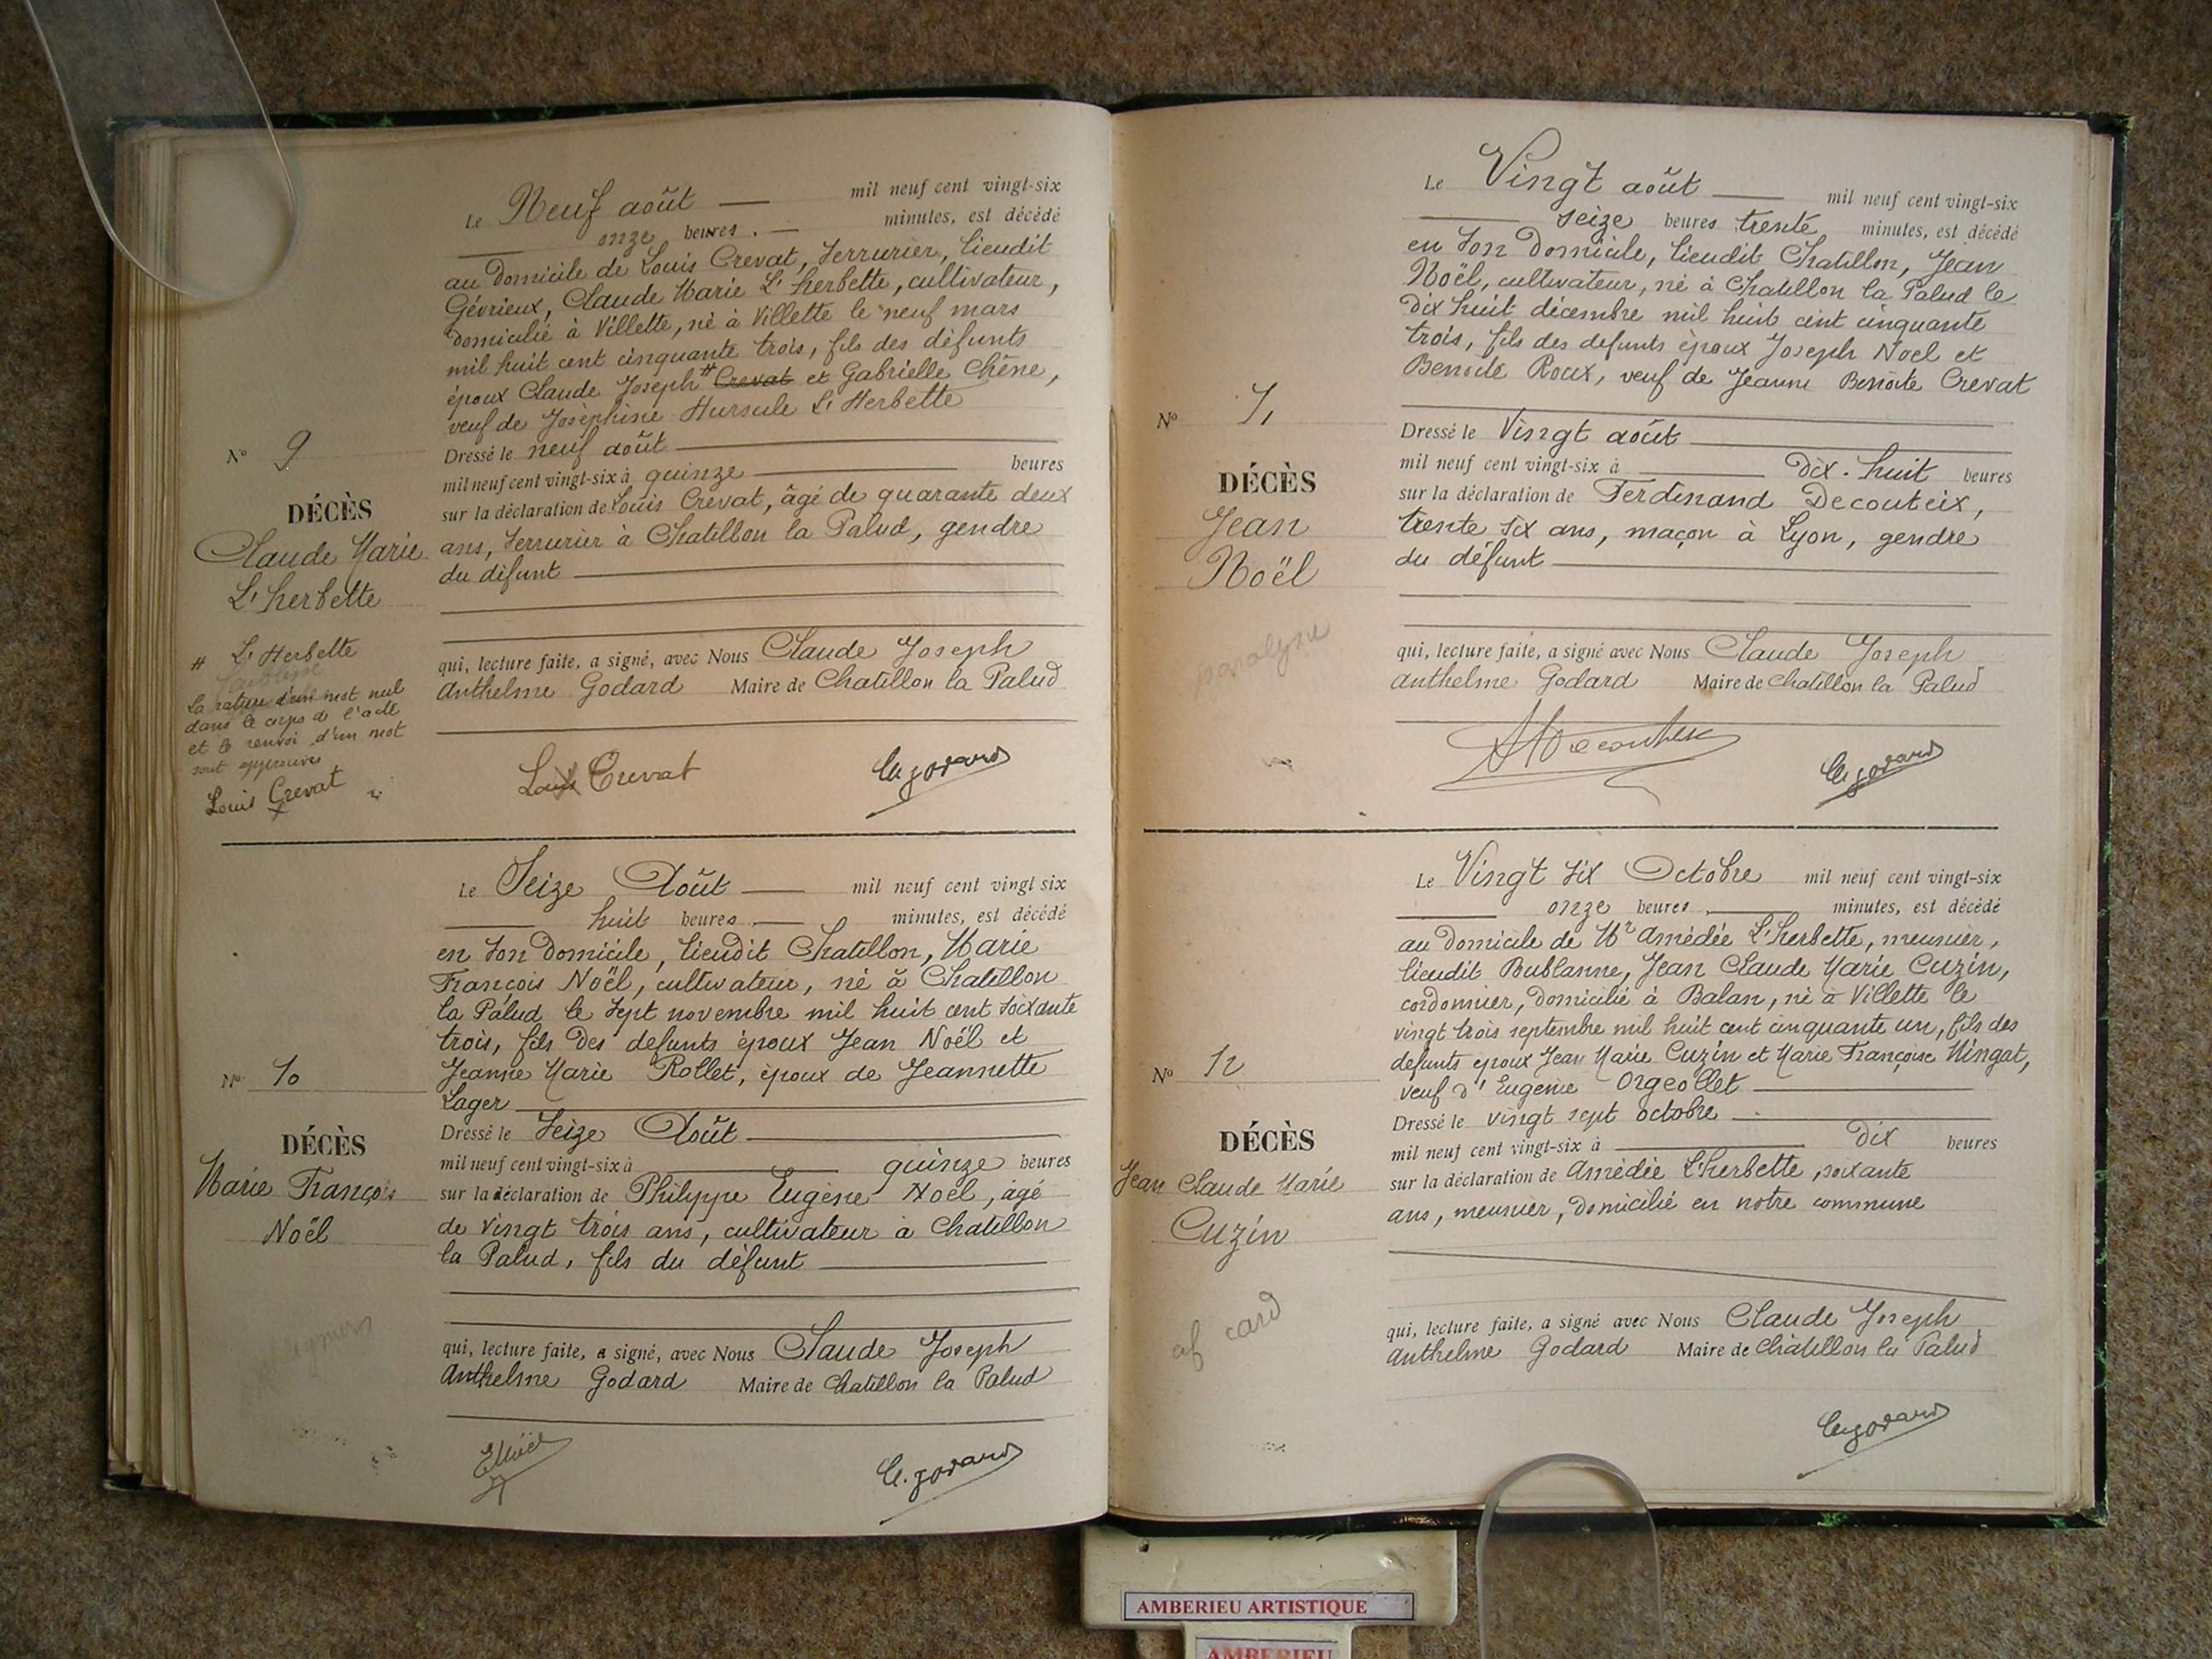 Le Neuf août mil neuf cent vingt-six
onze heures minutes, est décédé
au domicile de Louis Crevat, serrurier, lieudit
Gévrieux, Claude Marie L'herbette, cultivateur,
domicilié à Villette, né à Villette le neuf mars
mil huit cent cinquante trois, fils des défunts
époux Claude Joseph # Crevat et Gabrielle Chêne,
veuf de Josèphine Hursule L'Herbette
Dressé le neuf août
mil neuf cent vingt-six à quinze heures
sur la déclaration de Louis Crevat, âgé de quarante deux
ans, serrurier à Chatillon la Palud, gendre
du défunt
qui, lecture faite, a signé, avec Nous Claude Joseph
Anthelme Godard Maire de Chatillon la Palud
Louis Crevat
Cl. Godard
No 9
DÉCÈS
Claude Marie
L'herbette
# L'Herbette
La rature d'un mot nul
dans le corps de l'acte
et le renvoi d'un mot
sont approuvés
Louis Crevat
Le Seize Août mil neuf cent vingt six
huit heures minutes, est décédé
en son domicile, lieudit Chatillon, Marie
François Noël, cultivateur, né à Chatillon
la Palud le sept novembre mil huit cent soixante
trois, fils des defunts époux Jean Noël et
Jeanne Marie Rollet, époux de Jeannette
Lager
Dressé le Seize Août
mil neuf cent vingt-six à quinze heures
sur la déclaration de Philippe Eugène Noël, agé
de vingt trois ans, cultivateur à Chatillon
la Palud, fils du défunt
qui, lecture faite, a signé, avec Nous Claude Joseph
Anthelme Godard Maire de Chatillon la Palud
ENoël
Cl. Godard
No 10
DÉCÈS
Marie François
Noël
Le Vingt août mil neuf cent vingt-six
seize heures trente minutes, est décédé
en son domicile, lieudit Chatillon, Jean
Noël, cultivateur, né à Chatillon la Palud le
dix huit décembre mil huit cent cinquante
trois, fils des defunts époux Joseph Noel et
Benoite Roux, veuf de Jeanne Benoite Crevat
Dressé le Vingt août
mil neuf cent vingt-six à dix-huit heures
sur la déclaration de Ferdinand Decouteix,
trente six ans, maçon à Lyon, gendre
du défunt
qui, lecture faite, a signé avec Nous Claude Joseph
Anthelme Godard Maire de Chatillon la Palud
Decouteix
Cl. Godard
No 11
DÉCÈS
Jean
Noël
paralysie
Le Vingt six Octobre mil neuf cent vingt-six
onze heures minutes, est décédé
au domicile de Mr Amédée L'herbette, meunier,
lieudit Bublanne, Jean Claude Marie Cuzin,
cordonnier, domicilié à Balan, né à Villette le
vingt trois septembre mil huit cent cinquante un, fils des
défunts époux Jean Marie Cuzin et Marie Françoise Mingat,
veuf d'Eugenie Orgeollet
Dressé le vingt sept octobre
mil neuf cent vingt-six à dix heures
sur la déclaration de Amédée L'herbette, soixante
ans, meunier, domicilié en notre commune
qui, lecture faite, a signé avec Nous Claude Joseph
Anthelme Godard Maire de Châtillon la Palud
Cl. Godard
No 12
DÉCÈS
Jean Claude Marie
Cuzin
af card
AMBERIEU ARTISTIQUE
AMBERIEU